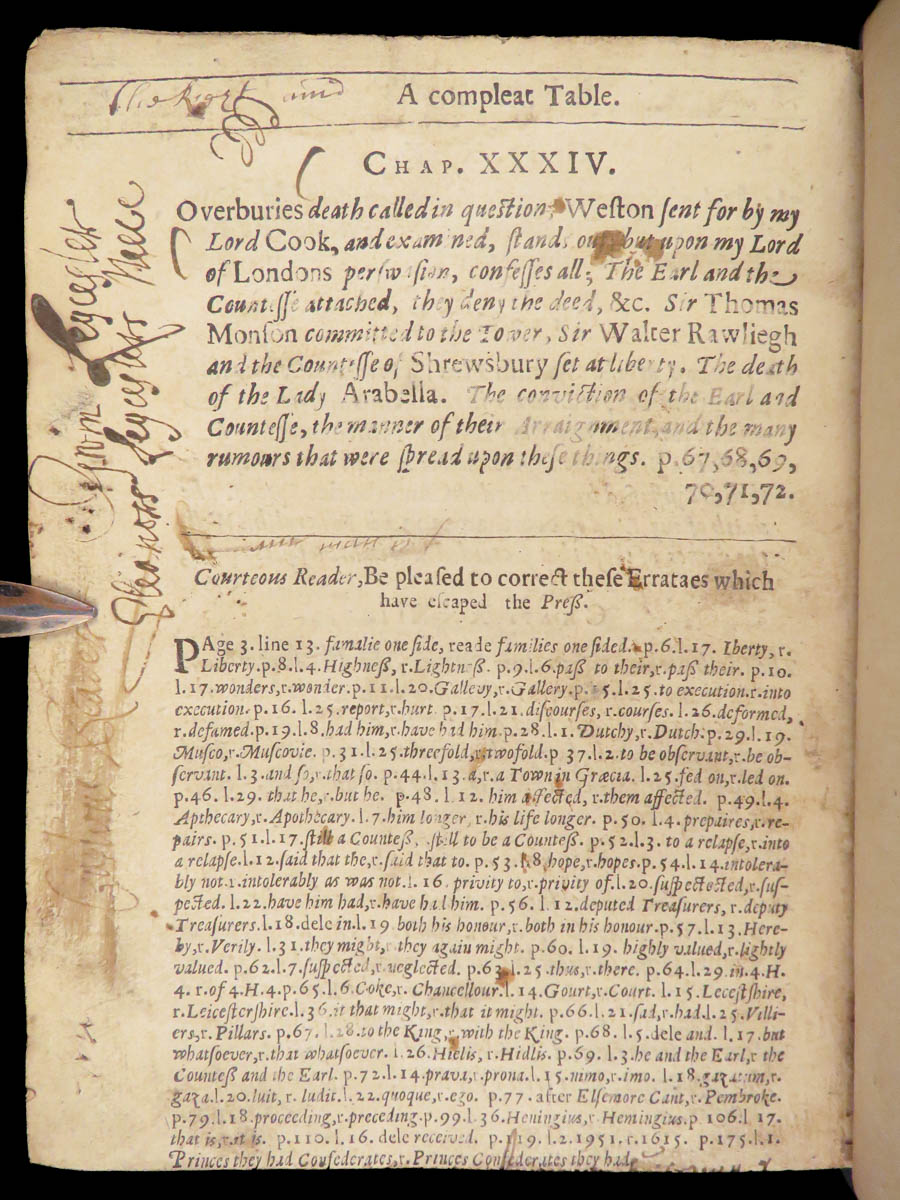 A compleat Table.
CHAP. XXXIV.
Overburies death called in question, Weſton ſent for by my
Lord Cook, and examined, ſtands out, but upon my Lord
of Londons perſwaſion, confeſſes all; The Earl and the
Counteſſe attached, they deny the deed, &c. Sir Thomas
Monſon committed to the Tower, Sir Walter Rawliegh
and the Counteſſe of Shrewsbury ſet at liberty. The death
of the Lady Arabella. The conviction of the Earl and
Counteſſe, the manner of their Arraignment, and the many
rumours that were ſpread upon theſe things. p.67,68,69,
70,71,72.
Courteous Reader, Be pleaſed to correct theſe Errataes which
have eſcaped the Preß.
PAge 3. line 13. familie one ſide, reade families one ſided. p.6.l.17. Iberty, r.
Liberty.p.8.l.4.Highneß, r.Lightneß. p.9.l.6.paß to their,r.paß their. p.10.
l.17.wonders,r.wonder.p.11.l.20.Gallevy,r.Gallery.p. 5.l.25.to execution.r.into
execution. p.16. l.25.report,r.hurt. p.17.l.21.diſcourſes, r.courſes. l.26.deformed,
r.defamed.p.19.l.8.had him,r.have had him.p.28.l.1.Dutchy,r.Dutch.p.29.l.19.
Muſco,r.Muſcovie. p.31.l.25.threefold,r.twofold.p 37.l.2.to be obſervant,r.be ob-
ſervant. l.3.and ſo,r.that ſo. p.44.l.13.a,r.a Town in Græcia. l.25.fed on,r.led on.
p.46. l.29. that he,r.but he. p.48. l.12. him affected, r.them affected. p.49.l.4.
Apthecary,r.Apothecary. l.7.him longer, r.his life longer. p.50. l.4.prepaires,r.re-
pairs. p.51.l.17.ſtill a Counteß, ſtill to be a Counteß. p.52.l.3. to a relapſe,r.into
a relapſe.l.12.ſaid that the,r.ſaid that to. p.53.l.8.hope,r.hopes.p.54.l.14.intolera-
bly not.r.intolerably as was not.l.16.privity to,r.privity of.l.20.ſuſpectected,r.ſuſ-
pected. l.22.have him had,r.have had him. p.56. l.12.deputed Treaſurers, r.deputy
Treaſurers.l.18.dele in.l.19.both his honour,r.both in his honour.p.57.l.13.Here-
by,r.Verily. l.31.they might,r.they again might. p.60. l.19. highly valued,r.lightly
valued. p.62.l.7.ſuſpected,r.neglected. p.63.l.25.thus,r.there. p.64.l.29.in.4.H.
4. r.of 4.H.4.p.65.l.6.Coke,r.Chancellour.l.14.Gourt,r.Court. l.15.Leceſtſhire,
r.Leiceſterſhire.l.36.it that might,r.that it might. p.66.l.21.ſad,r.had.l.25.Villi-
ers,r.Pillars. p.67.l.28.to the King,r.with the King. p.68. l.5.dele and. l.17.but
whatſoever,r.that whatſoever. l.26.Hielis, r.Hidlis. p.69. l.3.he and the Earl,r the
Counteß and the Earl. p.72.l.14.prava,r.prona.l.15.nimo,r.imo. l.18.gazatum,r.
gaza.l.20.luit, r. ludit.l.22.quoque,r.ego. p.77.after Elſemore Cant,r.Pembroke.
p.79.l.18.proceeding,r.preceding.p.99.l.36.Heningius,r.Hemingius.p 106.l 17.
that is,r.it is. p.110.l.16. dele received. p.119.l.2.1951.r.1615. p.175.l.1.
Princes they had Confederates,r.Princes Confederates they had.